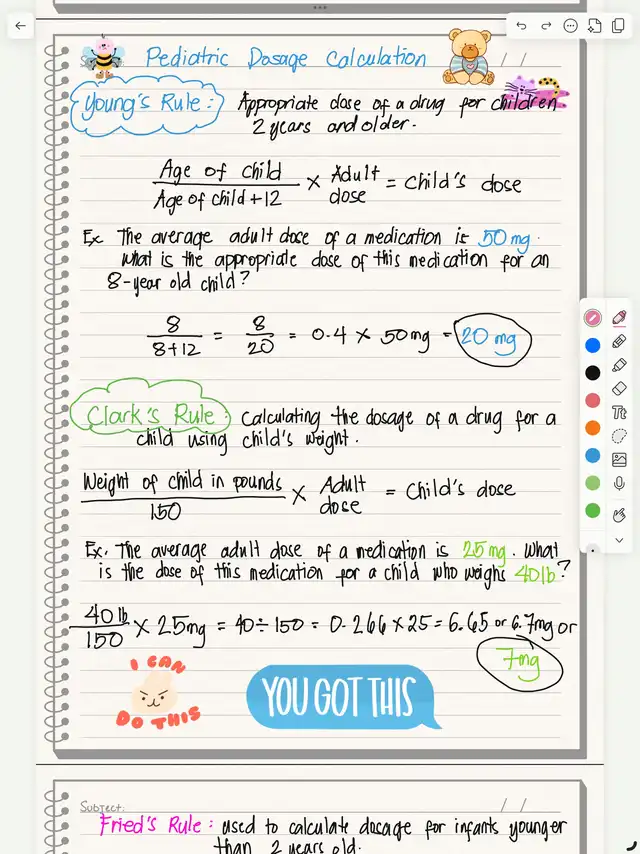 Pediatric Dosage Calculation / /
Young's Rule: Appropriate dose of a drug for children
2 years and older.
Age of child
Age of child + 12
× Adult dose = Child's dose
Ex The average adult dose of a medication is 50 mg.
What is the appropriate dose of this medication for an
8-year old child?
8/8+12 = 8/20 = 0.4 × 50mg = 20 mg
Clark's Rule: Calculating the dosage of a drug for a
child using child's weight.
Weight of child in pounds
150
× Adult dose = Child's dose
Ex. The average adult dose of a medication is 25mg. What
is the dose of this medication for a child who weighs 40lb?
40lb/150 × 25mg = 40÷150 = 0.266 × 25 = 6.65 or 6.7mg or
7mg
I CAN
DO THIS
YOU GOT THIS
Subject: / /
Fried's Rule: used to calculate dosage for infants younger
than 2 years old.